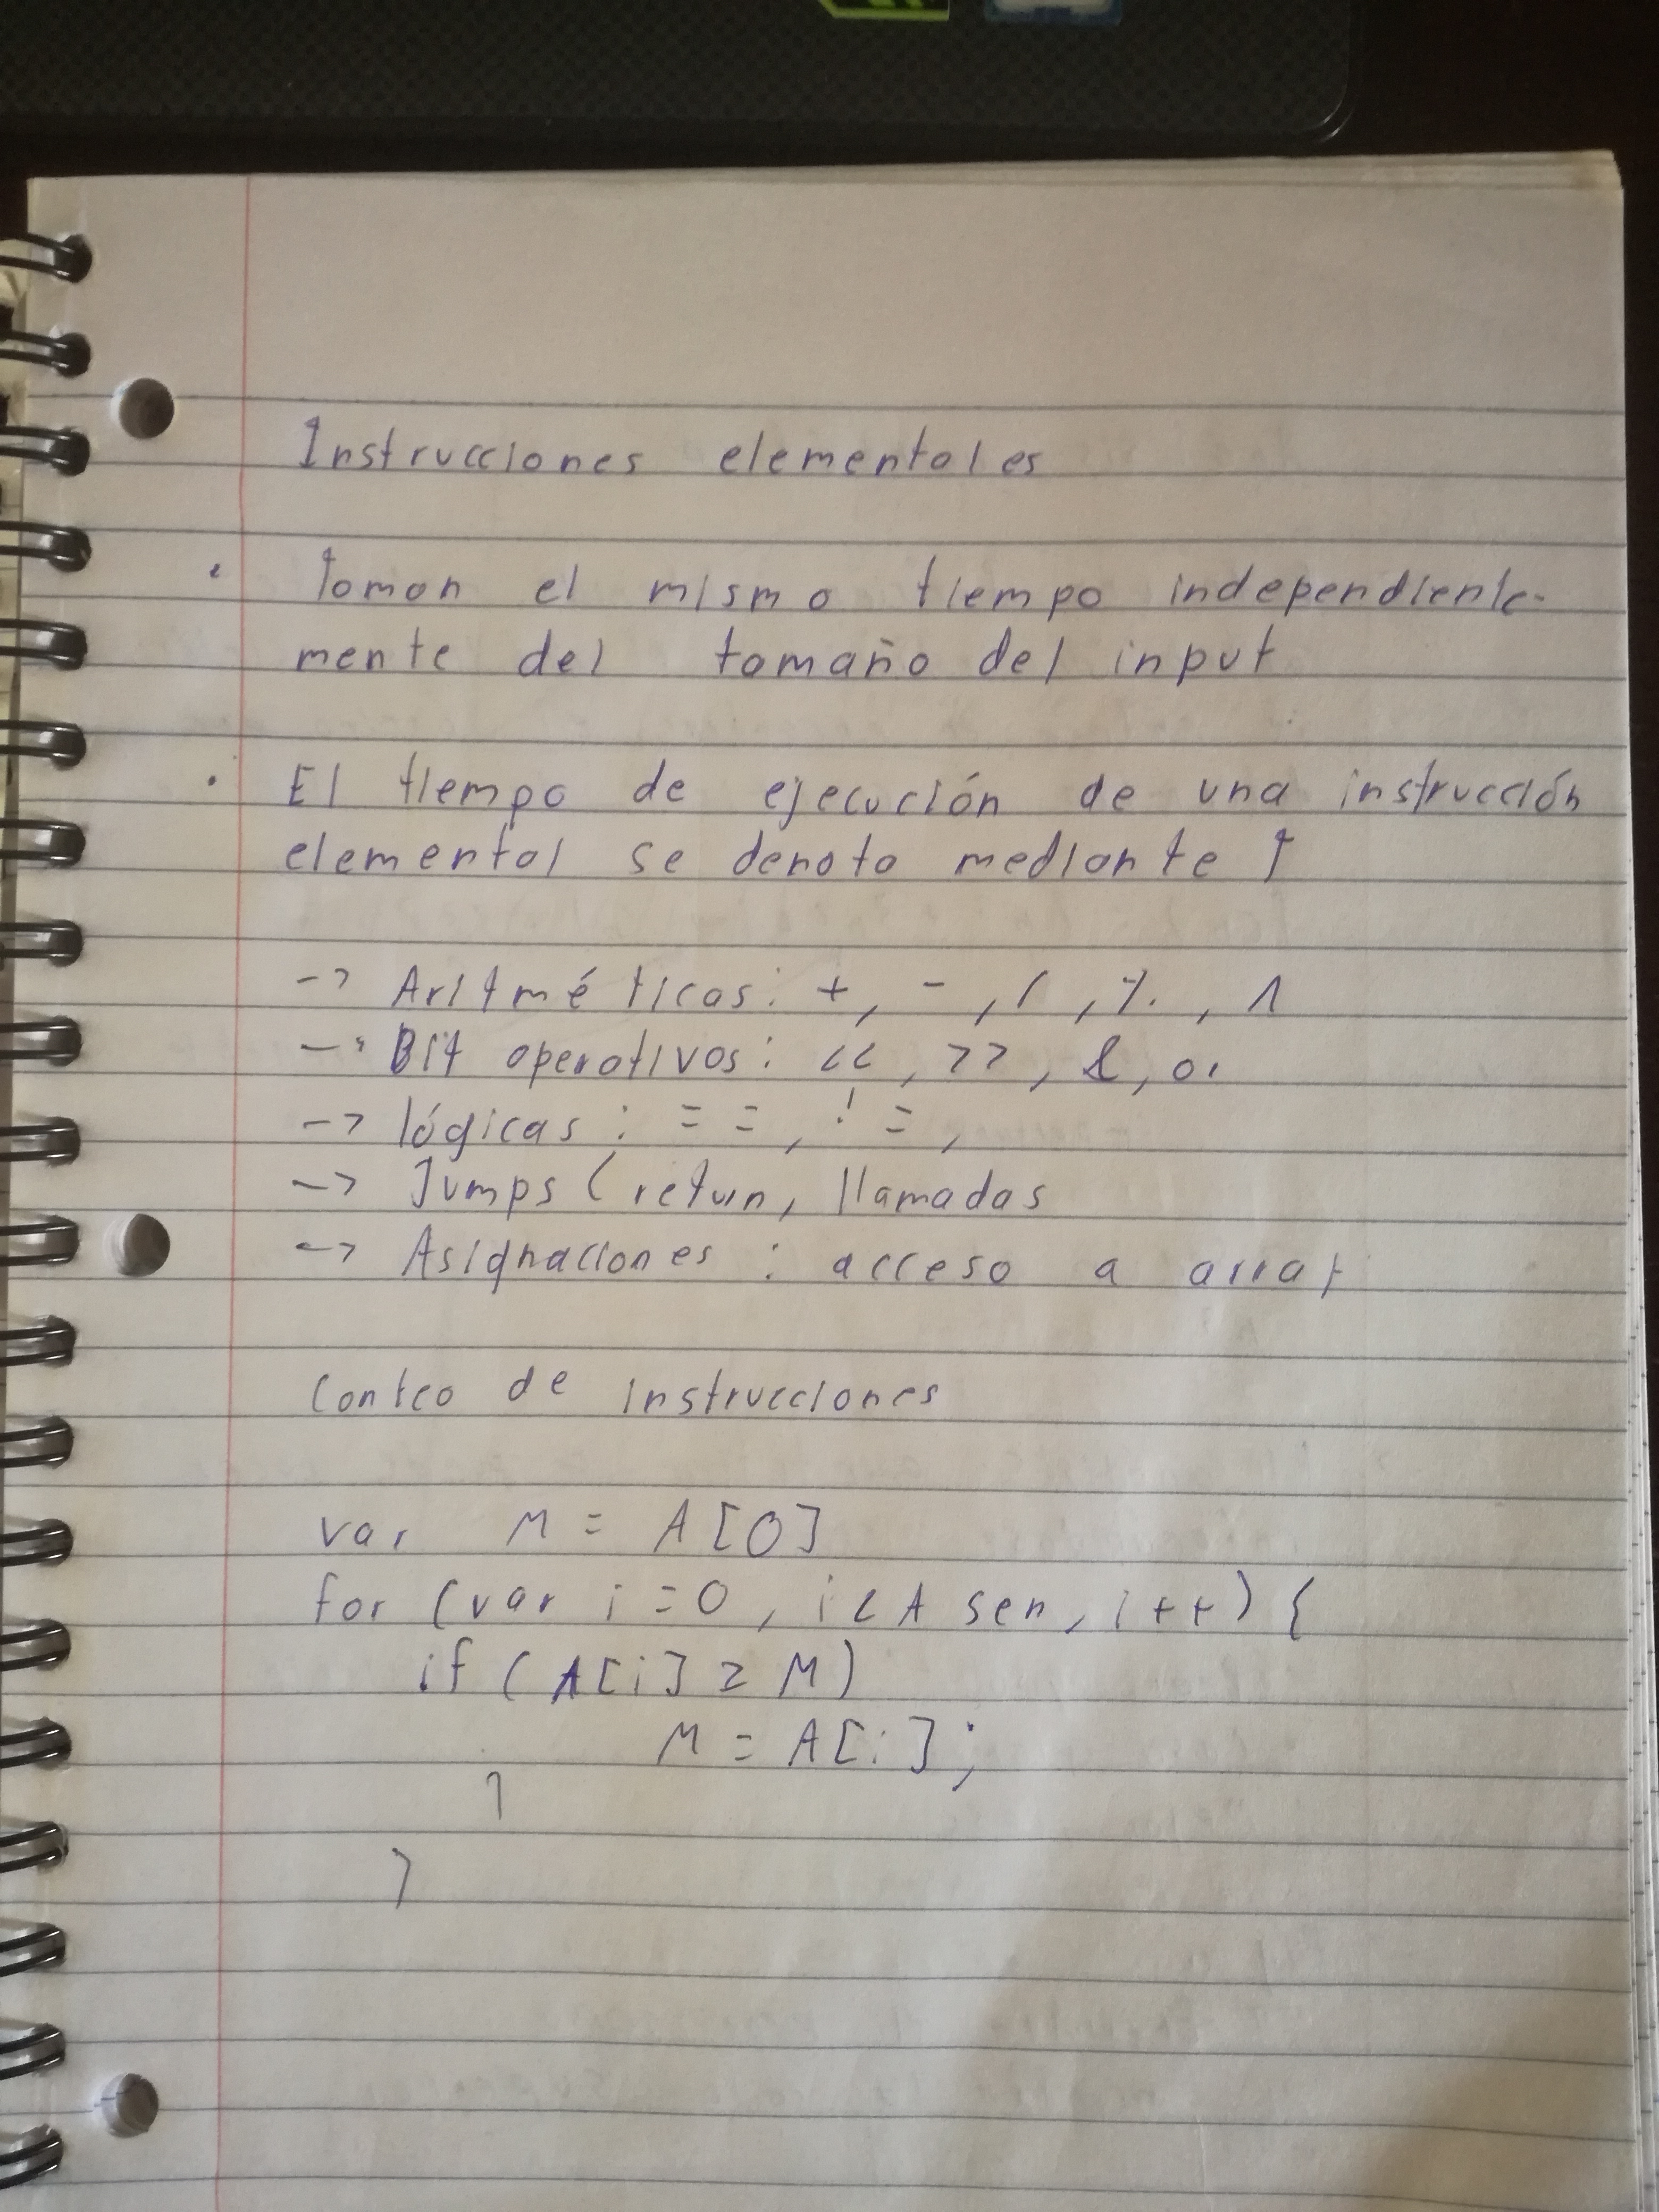 Instrucciones elementales
• Toman el mismo tiempo independiente-
mente del tamaño del input
• El tiempo de ejecución de una instrucción
elemental se denota mediante ↑
-> Aritméticas: +, -, /, %, ^
-> Bit operativos: <<, >>, &, or
-> lógicas: ==, !=,
-> Jumps (return, llamadas
-> Asignaciones: acceso a array
Conteo de instrucciones
var M = A[0]
for (var i=0, i<A sen, i++) {
if (A[i] ≥ M)
M = A[i];
}
}